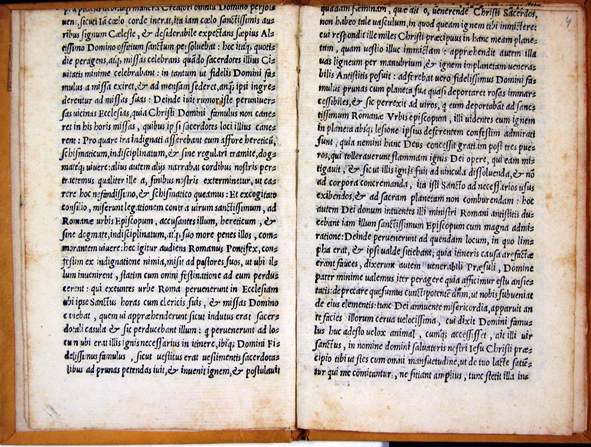 uen: sicut in cœlo corde inerat, ita iam cœlo sanctissimis au
ribus signum Cæleste, & desiderabile expectans sæpius Al-
tissimo Domino offitium sanctum persoluebat: hoc itaq; quoti
die peragens, atq; missas celebrans quādo sacerdotes illius Ci-
uitatis minime celebrabant: in tantum ut fidelis Domini fa-
mulus a missa exiret, & ad mensam sederet, atq; ipsi ingre-
derentur ad missas suas: Deinde iuit rumor per uniuer-
sas uicinas Ecclesias, quia Christi Domini famulus non cane-
ret in his horis missas, quibus ipsi sacerdotes loci illius cane-
rent: Pro quare ira indignati asserebant eum affore hereticū,
schismaticum, indisciplinatum, & sine regulari tramite, dog-
mateq; uiuere: alius autem alijs narrabat cordibus nostris per-
tractemus qualiter ille a finibus nostris exterminetur, ut ca-
rere hoc nefandissimo, & schismatico queamus: Et excogitato
consilio, miserunt legationem contra uirum sanctissimum, ad
Romanæ urbis Episcopum, accusantes illum, hereticum, &
sine dogmate, indisciplinatum, atq; suo more penes illos, com
morantem uiuere: hoc igitur audiens Romanus Pontifex, con
festim ex indignatione nimia, misit ad pastores suos, ut ubi il-
lum inuenirent, statim cum omni festinatione ad eum perduc
cerent: qui exeuntes urbe Roma peruenerunt in Ecclesiam
ubi ipse Sanctus horas cum clericis suis, & missas Domino
canebat, quem ut apprehenderunt sicut indutus erat sacer
dotali casula & sic perducebant illum: q peruenerunt ad lo-
cum ubi erat illis ignis necessarius in itinere, ibiq; Domini Fi
delissimus famulus, sicut uestitus erat uestimentis sacerdota
libus ad prunas petendas iuit, & inuenit ignem, & postulauit
quādam fœminam, quæ ait o, uenerende Christi Sacerdos,
non habeo tale uasculum, in quod queam ignem tibi immittere:
cui respondit ille miles Christi præcipuus in hanc meam plane-
tam, quam uestio illuc immictam: apprehendit autem illa
uas ligneum per manubrium, & ignem in planetam uenerabi-
lis Antistitis posuit: adferebat uero fidelissimus Domini fa-
mulus prunas cum planeta sua quasi deportaret rosas immar-
cessibiles, & sic perrexit ad uiros, q eum deportabāt ad sanc-
tissimum Romanæ Vrbis episcopum, illi uidentes eum ignem
in planeta absq; lesione ipsus deserentem confestim admirati
sunt, quia nemini hanc Deus concessit grati am post tres pue-
ros, qui tollerauerunt flammam ignis Dei opere, qui eam mis-
tigauit, & sicut illa ignis fuit ad uincula dissoluenda, & nō
ad corpora concremanda, ita isti Sancto ad necessarios usus
exibendos, & ad sacram planetam non comburendam: hoc
autem Dei donum intuentes illi ministri Romani Antistitis du-
cebant iam illum sanctissimum Episcopum cum magna admi-
ratione: Deinde peruenerunt ad quendam locum, in quo lim-
pha erat, & ipsi ualde sitiebant; quia itineris causa arefactæ
erant fauces, dixerunt autem uenerabili Præsuli, Domine
pater minime ualemus iter peragere quia afficimur æstu anxie-
tatis: deprecare quesumus cunctipotentē dñm, ut nobis subueniat
de eius elementis: tunc Dei annuente misericordia, apparuit an
te facies illorum cerua uelocissima, cui dixit Domini famu
lus huc adesto uelox animal, cumq; accessisset, ait illi uir
sanctus, in nomine domini saluatoris nostri Iesu Christi præ-
cipio tibi ut stes cum omni mansuetudine, ut de tuo lacte satiē-
tur qui me comitantur, ne sitiant amplius, tunc stetit illa in-